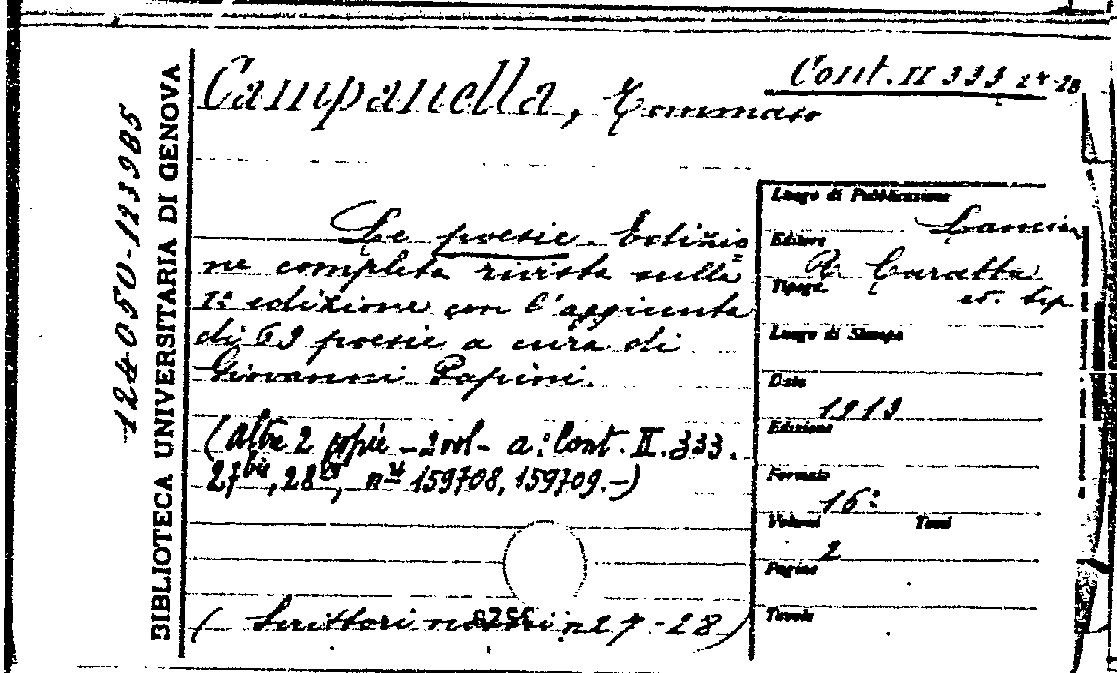 Cont. II 333 27-28
Campanella, Tommaso
BIBLIOTECA UNIVERSITARIA DI GENOVA
Le poesie. Edizio=
ne completa rivista sulla
1ª edizione con l'aggiunta
di 69 poesie a cura di
Giovanni Papini.
(altre 2 copie - 2 vol - a: Cont. II. 333.
27 bis, 28 bis, nⁱ 159708, 159709.-)
( Scrittori nostri n 27-28 )
Luogo di Pubblicazione
Lanciano
Editore
R. Carabba
Tipogr.
ed. tip.
Luogo di Stampa
Data
1913
Edizione
Formato
16º
Volumi Tomi
2
Pagine
Tavole